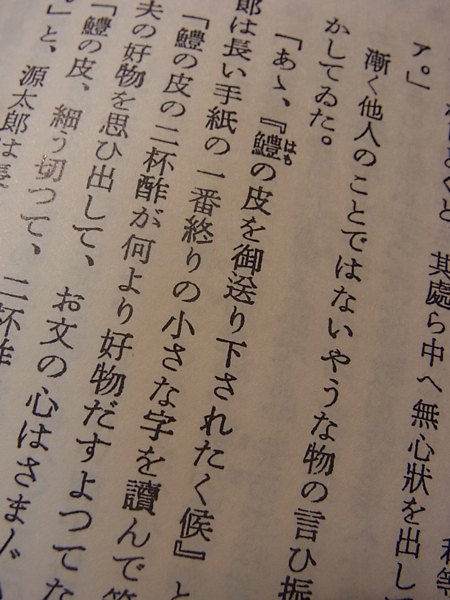 其處ら中へ無心狀を出し
ア。」
漸く他人のことではないやうな物の言ひ振
かしてゐた。
「あゝ、『鱧の皮を御送り下されたく候』と
郎は長い手紙の一番終りの小さな字を讀んで笑
「鱧の皮の二杯酢が何より好物だすよつてな
夫の好物を思ひ出して、お文の心はさま〴〵
「鱧の皮、細う切つて、二杯酢
。」と、源太郎は